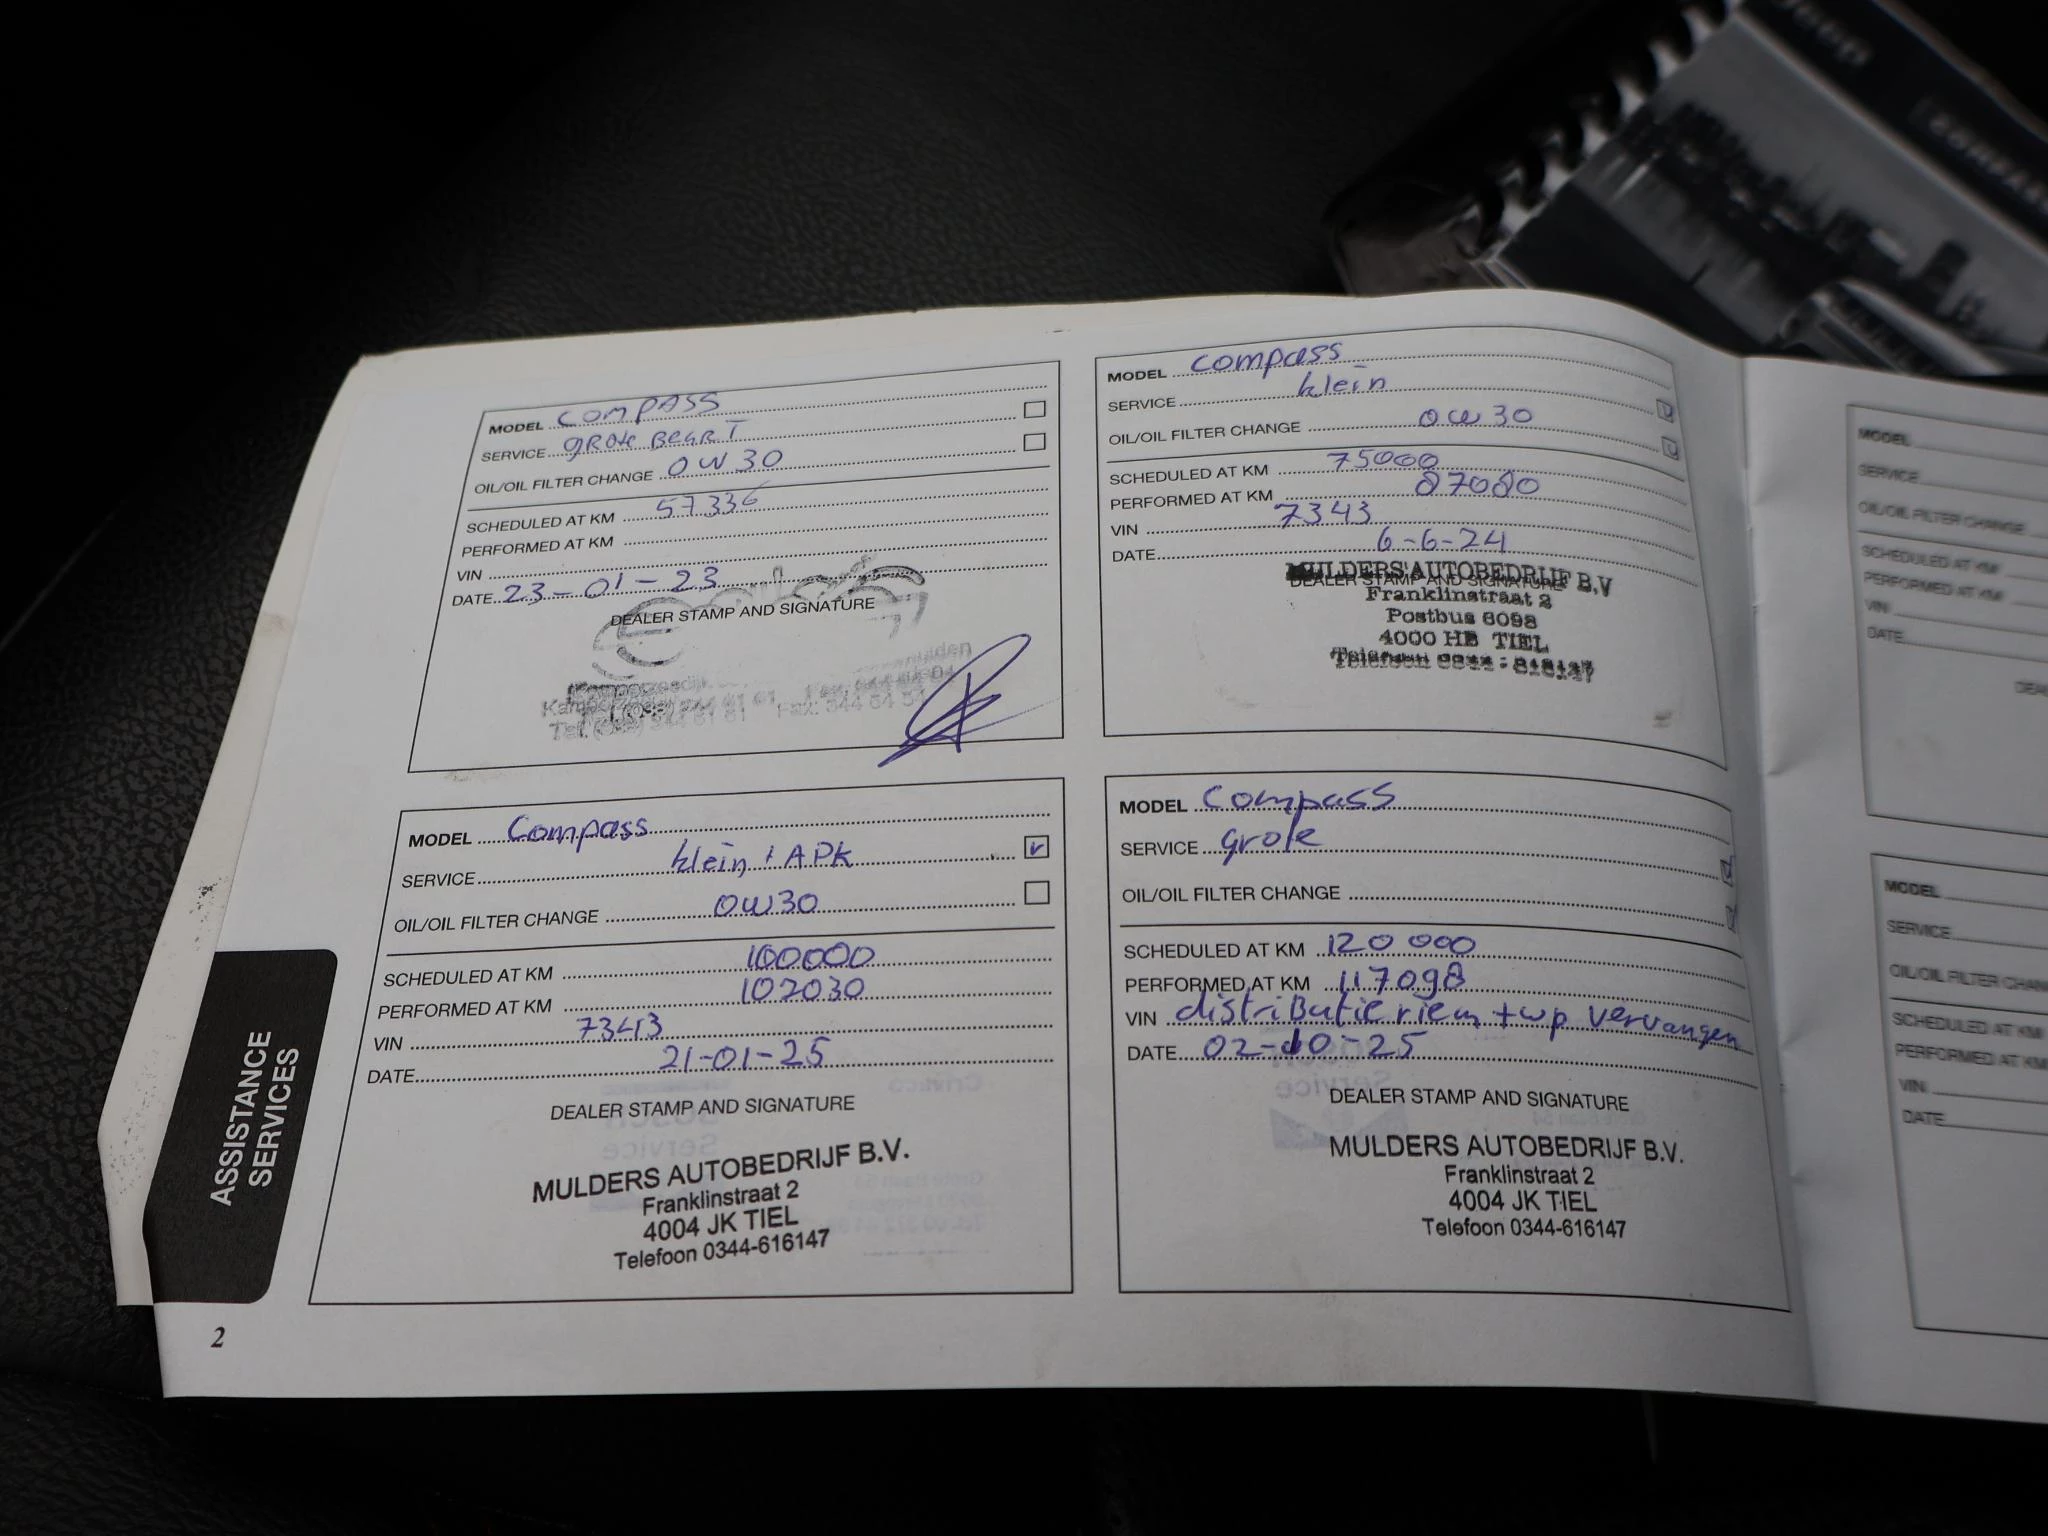 Jeep
COMPASS
MODEL COMPASS
SERVICE GROTE BEURT
OIL/OIL FILTER CHANGE 0W30
SCHEDULED AT KM 57336
PERFORMED AT KM
VIN
DATE 23-01-23
DEALER STAMP AND SIGNATURE
MODEL compass
SERVICE klein
OIL/OIL FILTER CHANGE 0W30
SCHEDULED AT KM 75000
PERFORMED AT KM 87080
VIN 7343
DATE 6-6-24
MULDERS AUTOBEDRIJF B.V
DEALER STAMP AND SIGNATURE
Franklinstraat 2
Postbus 6098
4000 HB TIEL
Telefoon 0344-616147
MODEL Compass
SERVICE klein + APK
OIL/OIL FILTER CHANGE 0W30
SCHEDULED AT KM 100000
PERFORMED AT KM 102030
VIN 7343
DATE 21-01-25
DEALER STAMP AND SIGNATURE
MULDERS AUTOBEDRIJF B.V.
Franklinstraat 2
4004 JK TIEL
Telefoon 0344-616147
MODEL Compass
SERVICE grote
OIL/OIL FILTER CHANGE
SCHEDULED AT KM 120 000
PERFORMED AT KM 117098
VIN distributie riem + wp vervangen
DATE 02-10-25
DEALER STAMP AND SIGNATURE
MULDERS AUTOBEDRIJF B.V.
Franklinstraat 2
4004 JK TIEL
Telefoon 0344-616147
ASSISTANCE
SERVICES
2
MODEL
SERVICE
OIL/OIL FILTER CHANGE
SCHEDULED AT KM
PERFORMED AT KM
VIN
DATE
MODEL
SERVICE
OIL/OIL FILTER CHAN
SCHEDULED AT KM
PERFORMED AT KM
VIN
DATE